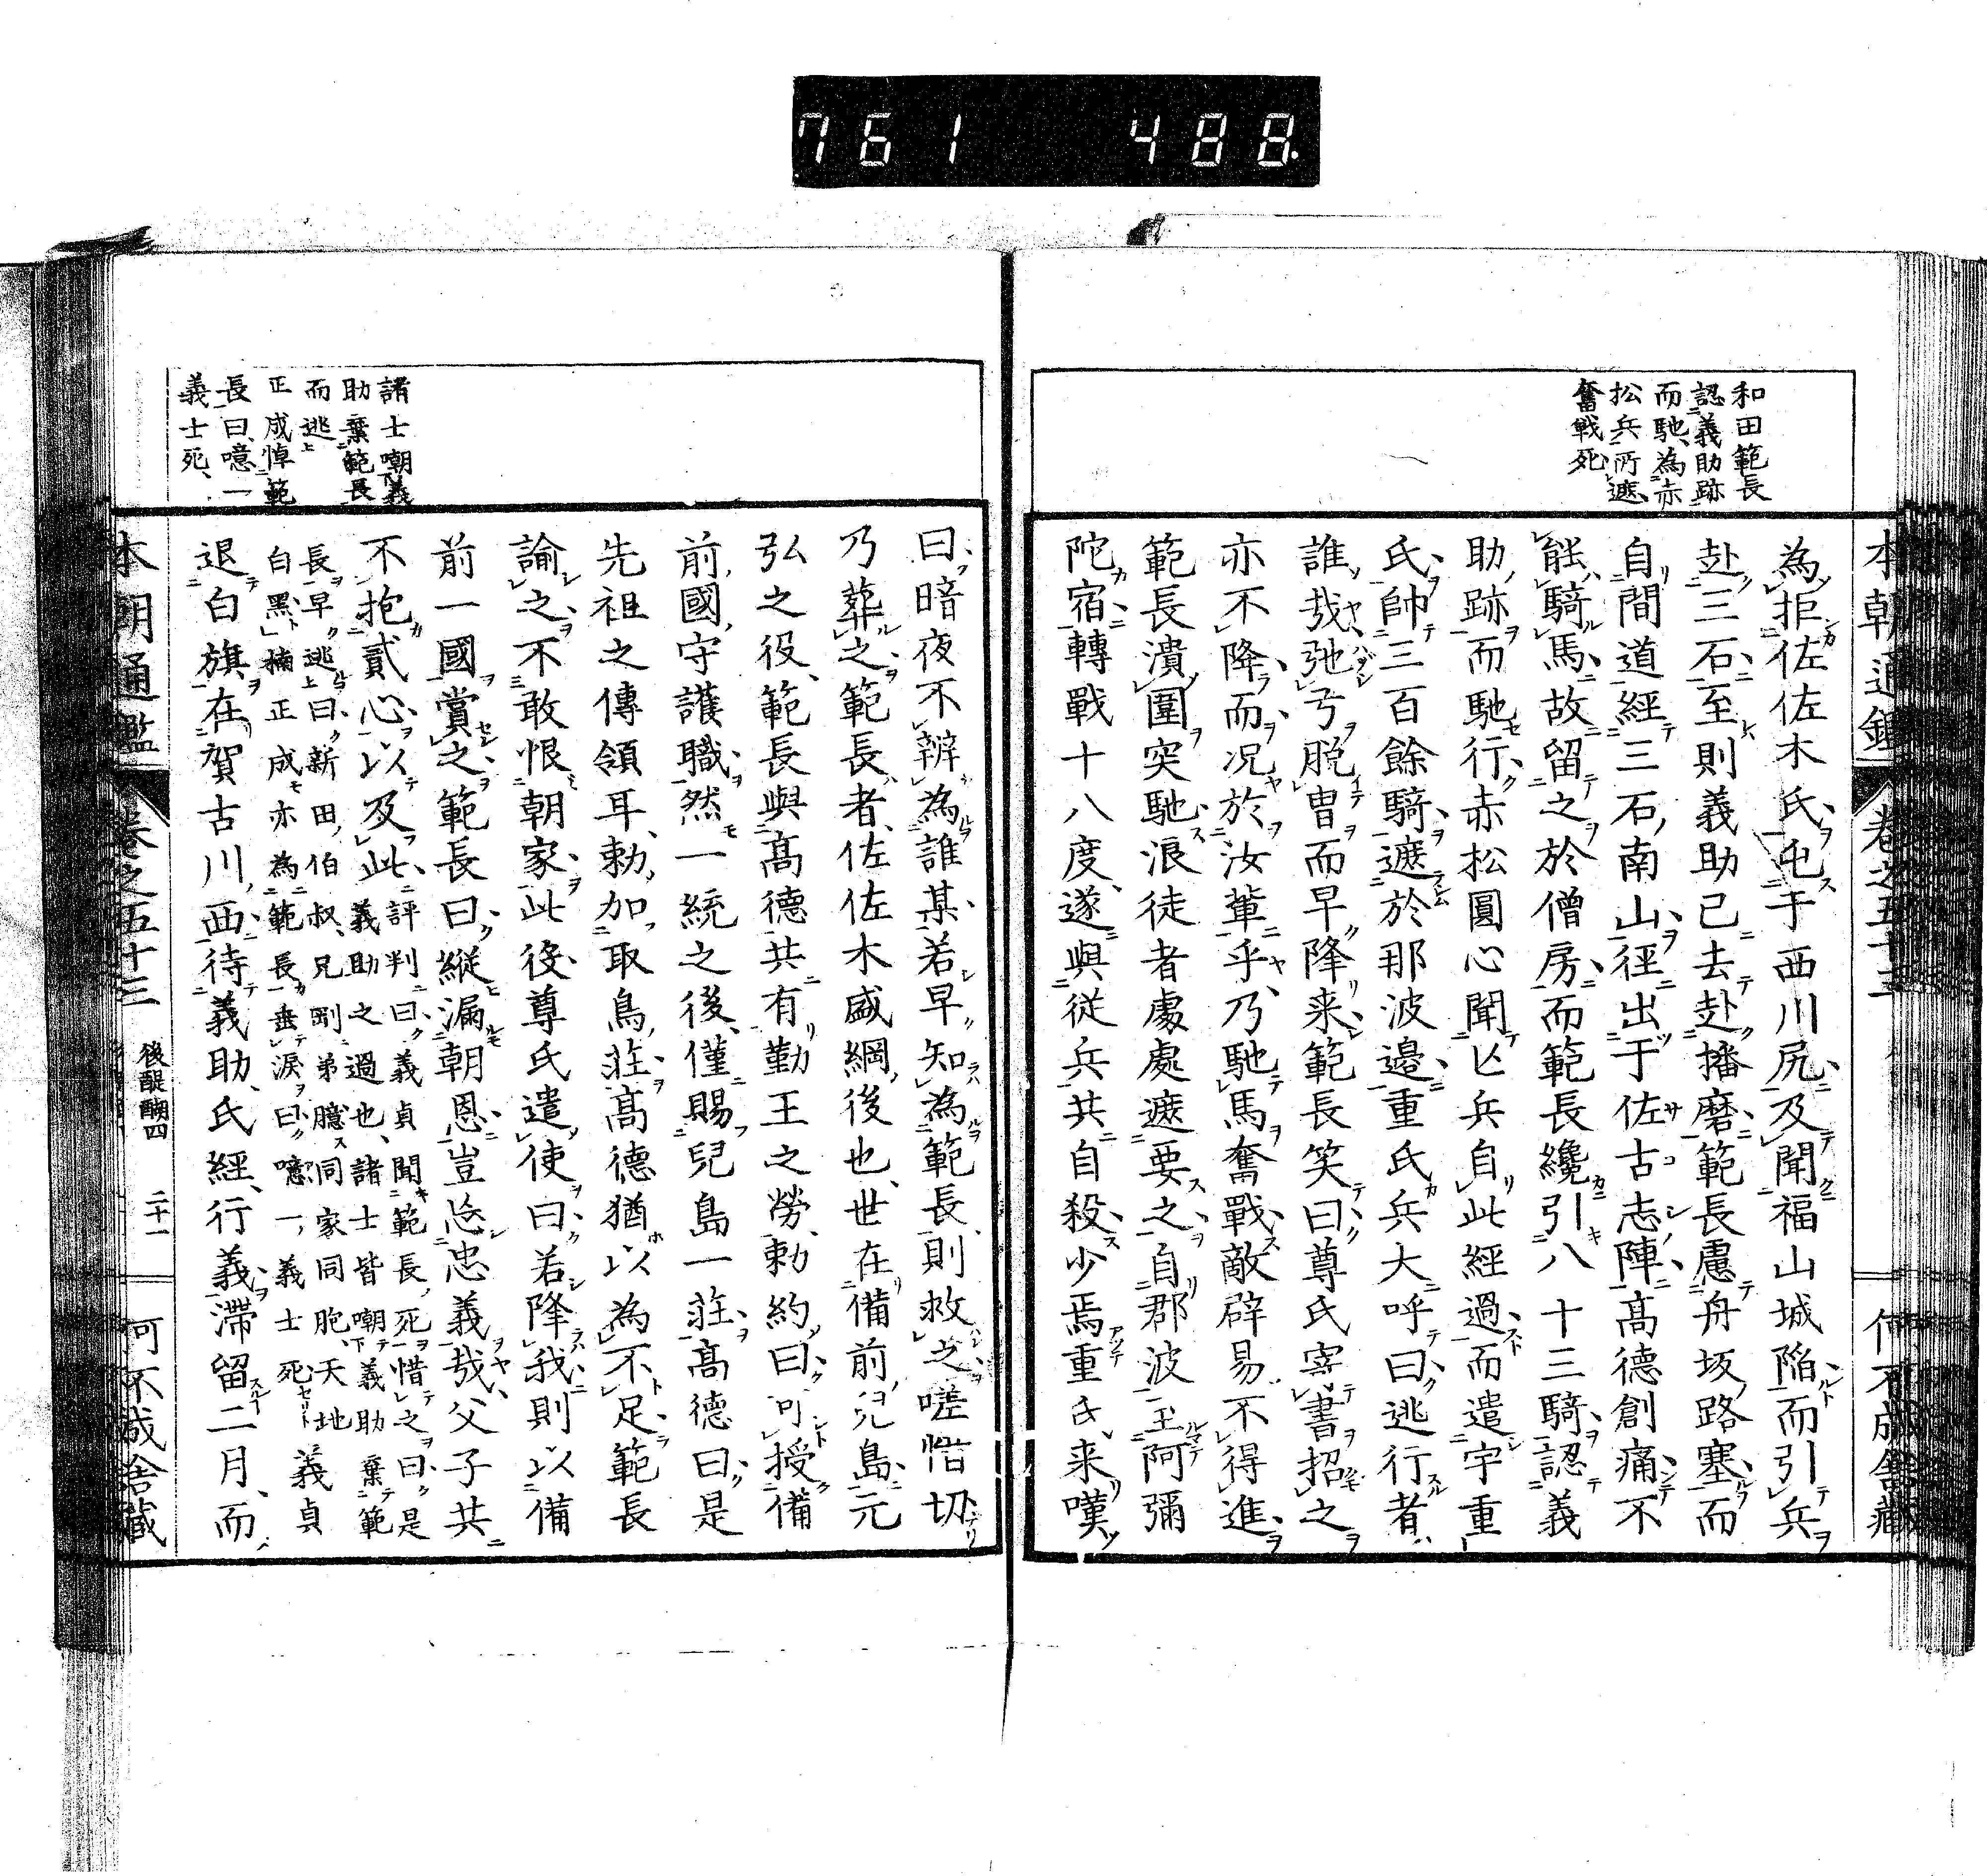 761 488.
和田範長
認義助跡
而馳為赤
松兵所遮
奮戦死
為拒佐佐木氏屯于西川尻及聞福山城陥而引兵
赴三石至則義助已去赴播磨範長慮舟坂路塞而
自間道經三石南山徑出于佐古志陣髙德創痛不
能騎馬故留之於僧房而範長纔引八十三騎認義
助跡而馳行赤松圓心聞亡兵自此經過而遣宇重
氏帥三百餘騎遮於那波邊重氏兵大呼曰逃行者
誰哉弛弓脱冑而早降来範長笑曰尊氏寄書招之
亦不降而况於汝輩乎乃馳馬奮戰敵辟易不得進
範長潰圍突馳浪徒者處處遮要之自郡波至阿彌
陀宿轉戰十八度遂與従兵共自殺少焉重氏来嘆
諸士嘲義
助棄範長
而逃
正成悼範
長曰噫一
義士死
曰暗夜不辨為誰某若早知為範長則救之嗟惜切
乃葬之範長者佐佐木盛綱後也世在備前兒島元
弘之役範長與髙德共有勤王之勞勅約曰可授備
前國守護職然一統之後僅賜兒島一莊髙德曰是
先祖之傳領耳勅加取鳥莊髙德猶以為不足範長
諭之不敢恨朝家此後尊氏遣使曰若降我則以備
前一國賞之範長曰縱漏朝恩豈忘忠義哉父子共
不抱貳心以及此評判曰義貞聞範長死惜之曰是義助之過也諸士皆嘲義助棄範
長早逃曰新田伯叔兄剛弟臆同家同胞天地
白黒楠正成亦為範長垂涙曰噫一義士死義貞
退白旗在賀古川西待義助氏經行義滞留二月而
本朝通鑑 卷之五十三 後醍醐四 二十一 何不成舎藏